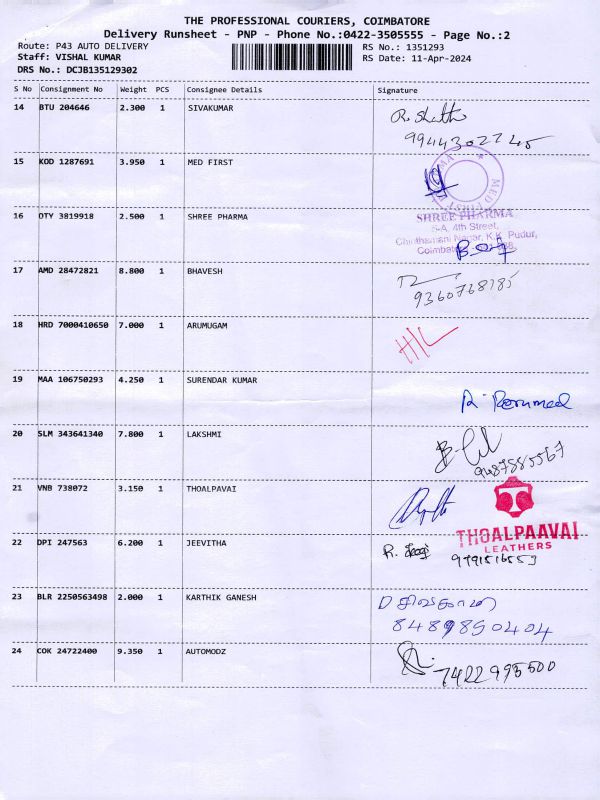 THE PROFESSIONAL COURIERS, COIMBATORE
Delivery Runsheet - PNP - Phone No.:0422-3505555 - Page No.:2
Route: P43 AUTO DELIVERY RS No.: 1351293
Staff: VISHAL KUMAR RS Date: 11-Apr-2024
DRS No.: DCJB135129302
S No Consignment No Weight PCS Consignee Details Signature
14 BTU 204646 2.300 1 SIVAKUMAR
99443022245
15 KOD 1287691 3.950 1 MED FIRST
MED FIRST
16 OTY 3819918 2.500 1 SHREE PHARMA
SHREE PHARMA
5-A, 4th Street,
Chinthamani Nagar, K.K. Pudur,
17 AMD 28472821 8.800 1 BHAVESH
9360768785
18 HRD 7000410650 7.000 1 ARUMUGAM
H/L
19 MAA 106750293 4.250 1 SURENDAR KUMAR
20 SLM 343641340 7.800 1 LAKSHMI
9487885567
21 VNB 738072 3.150 1 THOALPAVAI
THOALPAAVAI
LEATHERS
22 DPI 247563 6.200 1 JEEVITHA
23 BLR 2250563498 2.000 1 KARTHIK GANESH
D சிவகாமி
8489850404
24 COK 24722400 9.350 1 AUTOMODZ
7422993500